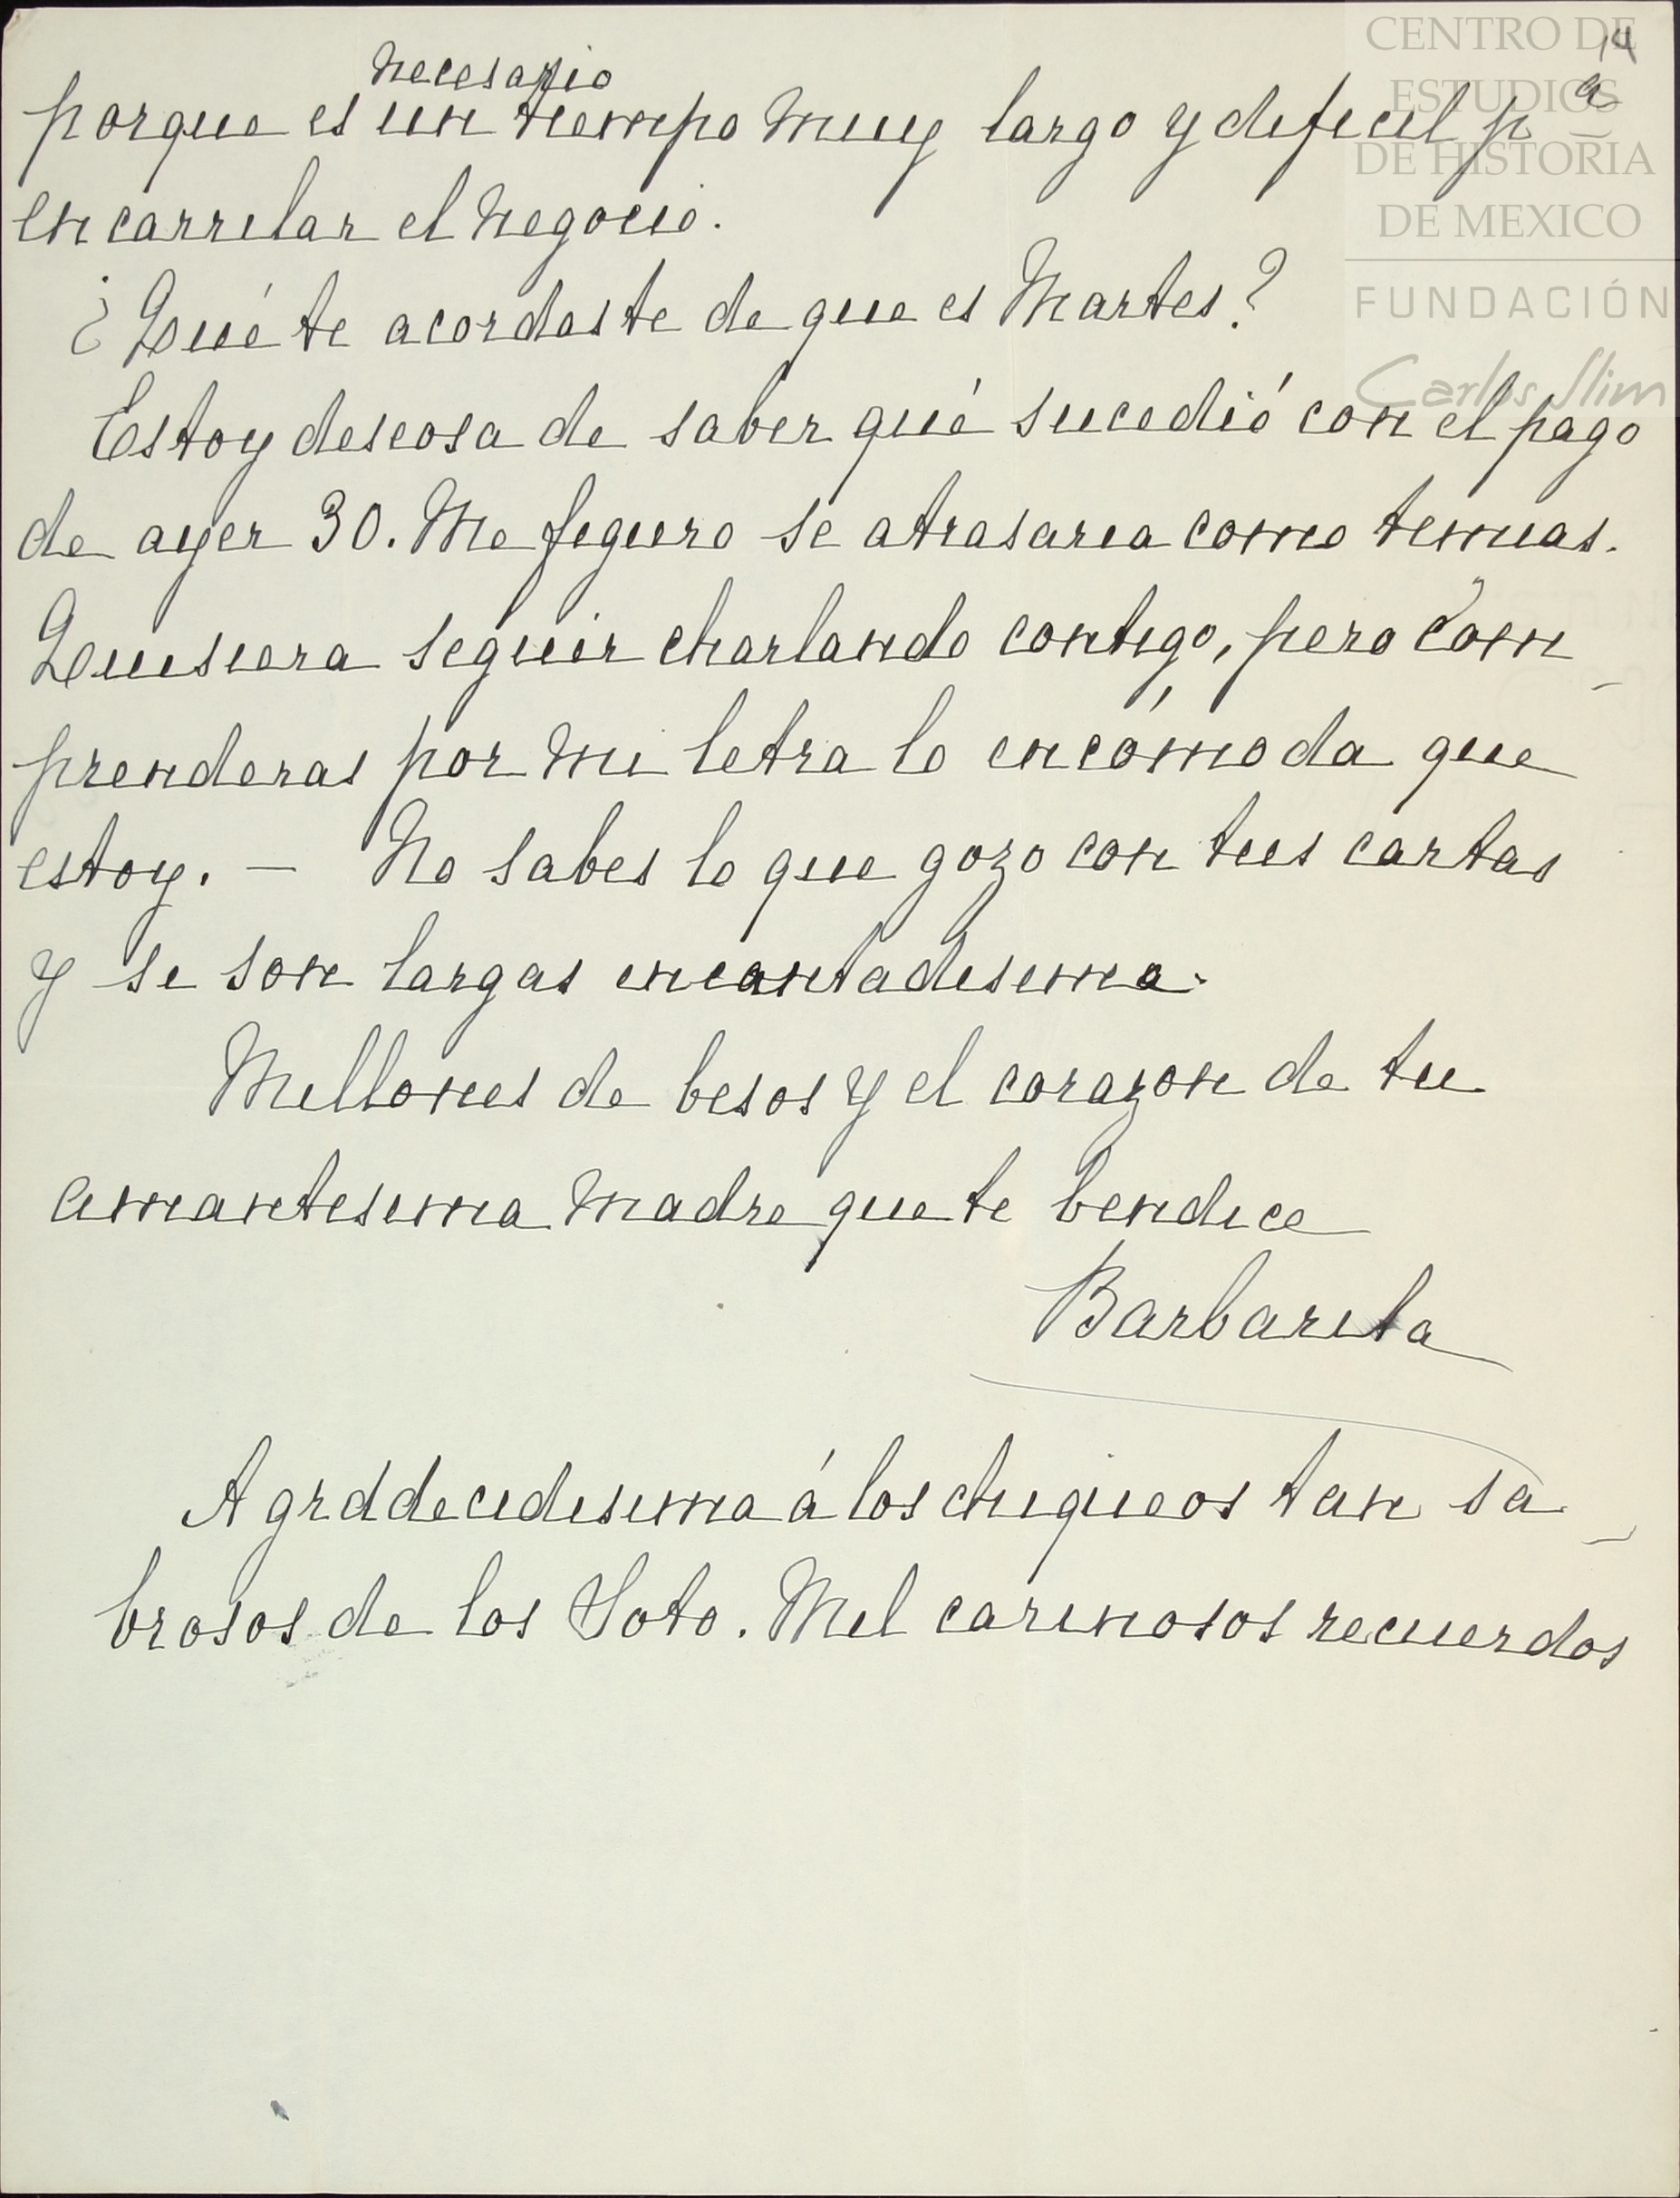 CENTRO DE
ESTUDIOS
DE HISTORIA
DE MEXICO
FUNDACIÓN
Carlos Slim
14
necesario
porque es un tiempo muy largo y dificil pª
encarrilar el negocio.
¿Qué te acordaste de que es Martes?
Estoy deseosa de saber qué sucedió con el pago
de ayer 30. Me figuro se atrasaria como temias.
Quisiera seguir charlando contigo, pero com_
prenderas por mi letra lo incómoda que
estoy. — No sabes lo que gozo con tus cartas
y si son largas encantadisima.
Millones de besos y el corazon de tu
amantisima madre que te bendice
Barbarita
Agradecidisima á los chiqueos tan sa_
brosos de los Soto. Mil carinosos recuerdos